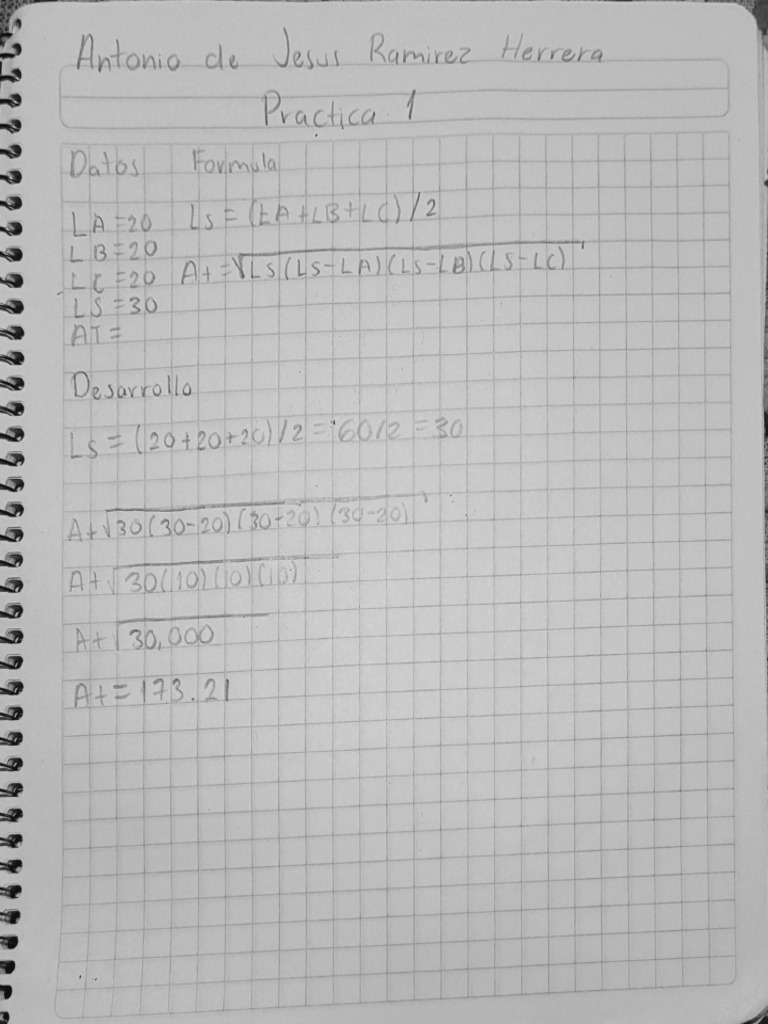 Antonio de Jesus Ramirez Herrera
Practica 1
Datos Formula
LA=20 Ls = (LA+LB+LC)/2
LB=20
LC=20 At=√LS(LS-LA)(LS-LB)(LS-LC)
LS=30
AT=
Desarrollo
Ls = (20+20+20)/2=60/2=30
At√30(30-20)(30-20)(30-20)
At√30(10)(10)(10)
At√30,000
At=173.21